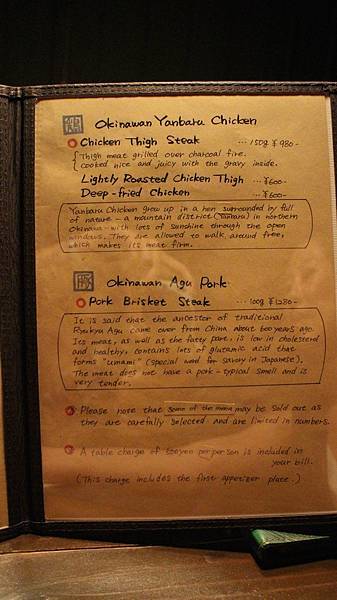 Okinawan Yanbaru Chicken
Chicken Thigh Steak ... 150g ¥980-
Thigh meat grilled over charcoal fire.
cooked nice and juicy with the gravy inside.
Lightly Roasted Chicken Thigh ... ¥600-
Deep-fried Chicken ... ¥600-
Yanbaru Chicken grew up in a hen surrounded by full
of nature - a mountain district (Yanbaru) in northern
Okinawa - with lots of sunshine through the open
windows. They are allowed to walk around free,
which makes its meat firm.
豚 Okinawan Agu Pork
Pork Brisket Steak ... 100g ¥1280-
It is said that the ancestor of traditional
Ryukyu Agu came over from China about 600 years ago.
Its meat, as well as the fatty part, is low in cholesterol
and healthy, contains lots of glutamic acid that
forms "umami" (special word for savory in Japanese).
The meat does not have a pork-typical smell and is
very tender.
Please note that some of the menu may be sold out as
they are carefully selected and are limited in numbers.
A table charge of yen per person is included in
your bill.
(This charge includes the first appetizer plate.)